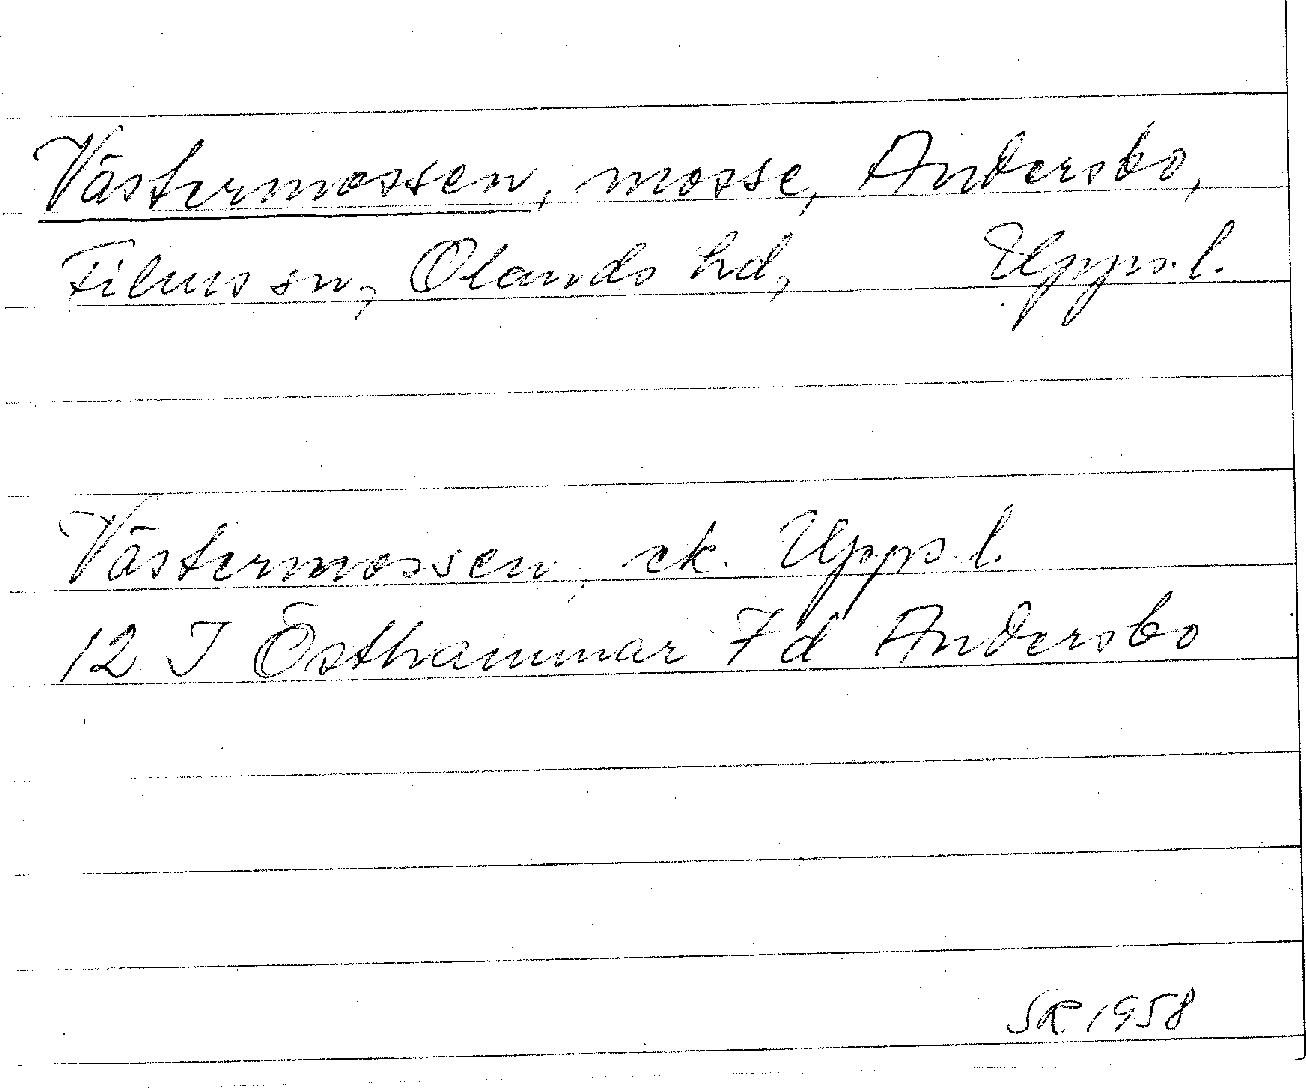 Västermossen, mosse, Andersbo,
Films sn, Olands hd, Upps.l.
Västermossen, ek. Upps.l.
12 I Östhammar 7 d Andersbo
SR 1958